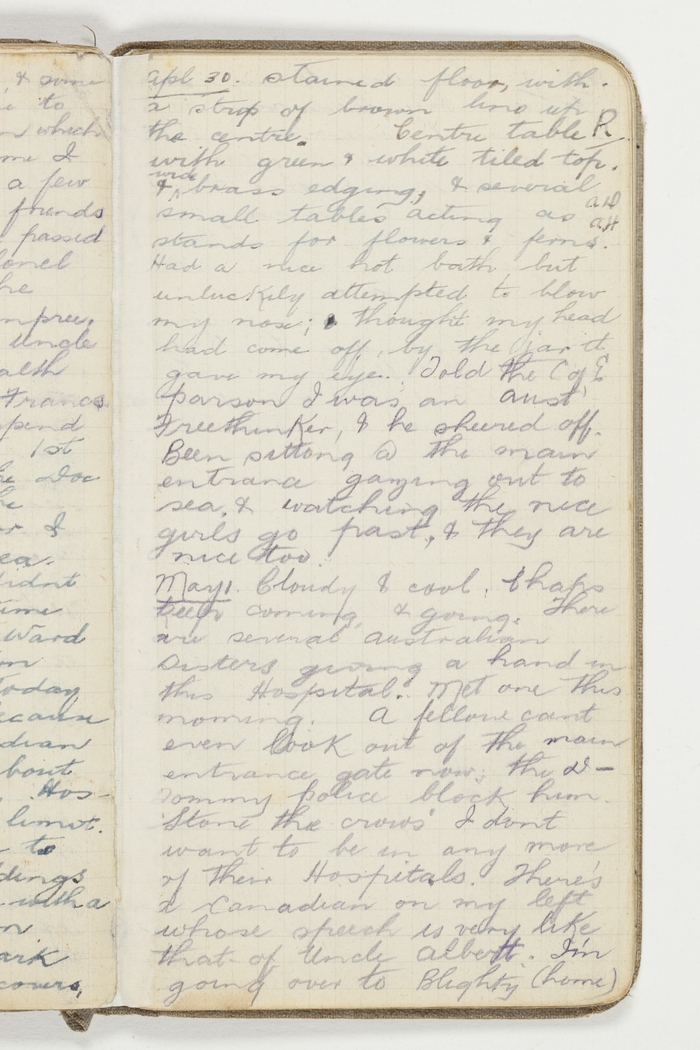 & some
to
which
me I
a few
friends
passed
Colonel
he
uncle
France
spend
1st
he Doc
he
r &
sea.
didnt
time
Ward
Today
because
dian
bout
Hos-
limit.
to
dings
. with a
ark
covers,
apl 30. stained floor, with.
a strip of brown lino up
the centre. Centre table R
with green & white tiled top.
wide
& brass edging, & several
small tables acting as
stands for flowers & ferns.
Had a nice hot bath, but
unluckily attempted to blow
my nose; thought my head
had come off, by the jar it
gave my eye. Told the C of E
parson I was an Aust
Freethinker, & he sheered off.
Been sitting @ the main
entrance gazing out to
sea, & watching the nice
girls go past, & they are
nice too.
May 1. Cloudy & cool. Chaps
been coming & going. There
are several australian
Sisters giving a hand in
this Hospital. Met one this
morning. A fellow cant
even look out of the main
entrance gate now; the d—
Tommy police block him.
'Stone the crows' I dont
want to be in any more
of their Hospitals. There's
a Canadian on my left
whose speech is very like
that of Uncle Albert. I'm
going over to Blighty (home)